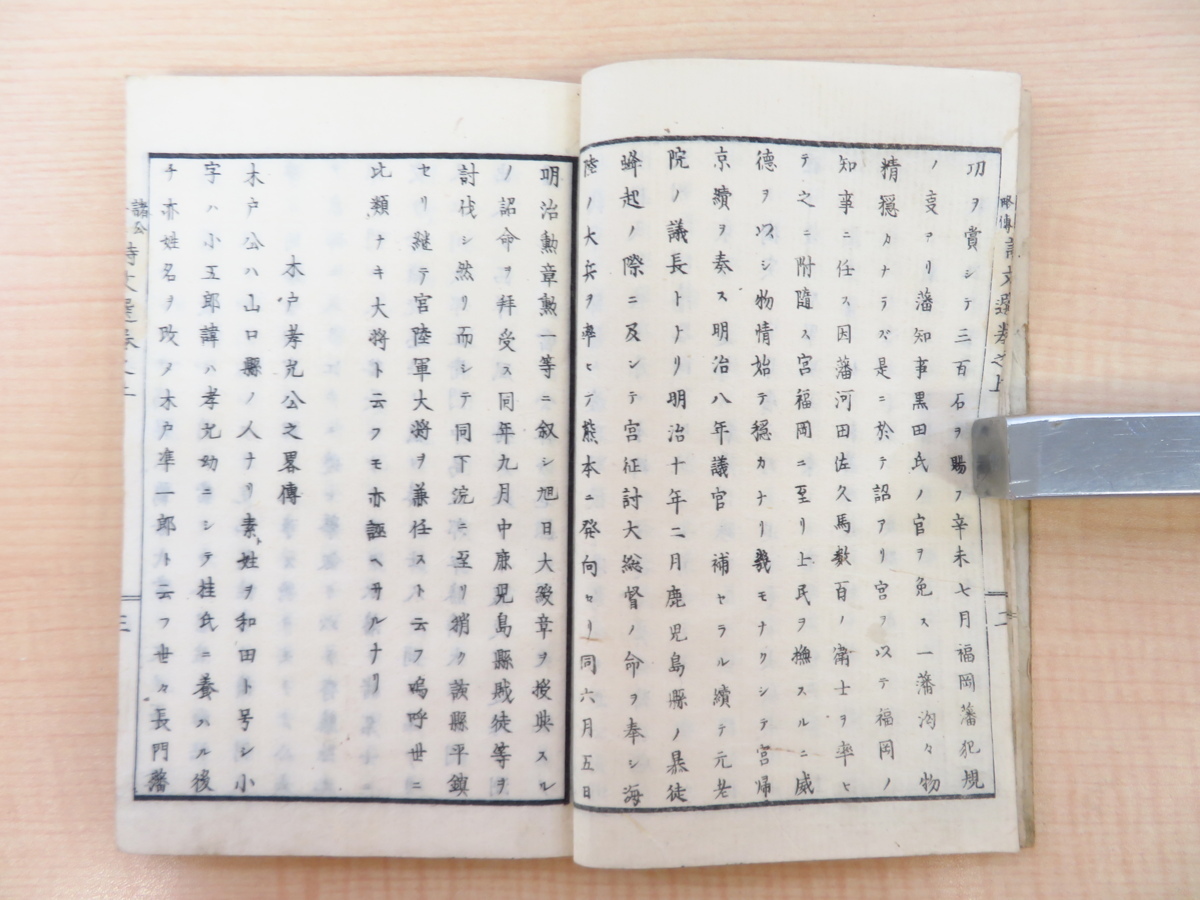 功ヲ賞シテ三百石ヲ賜フ辛未七月福岡藩犯規
ノ叓アリ藩知事黒田氏ノ官ヲ免ス一藩洶々物
情穏カナラズ是ニ於テ詔アリ宮ヲ以テ福岡ノ
知事ニ任ス因藩河田佐久馬数百ノ衛士ヲ率ヒ
テ之ニ附隨ス宮福岡ニ至リ士民ヲ撫スルニ威
德ヲ以シ物情始テ穏カナリ幾モナクシテ宮帰
京績ヲ奏ス明治八年議官 補セラル續テ元老
院ノ議長トナリ明治十年二月鹿児島縣ノ暴徒
蜂起ノ際ニ及シテ宮征討大総督ノ命ヲ奉シ海
陸ノ大兵ヲ率ヒテ熊本ニ発向セリ同六月五日
明治勲章勲一等ニ叙シ旭日大綬章ヲ授與スル
ノ詔命ヲ拜受ス同年九月中鹿児島縣賊徒等ヲ
討伐シ然リ而シテ同下浣ニ至リ稍ク該縣平鎮
セリ継テ宮陸軍大将ヲ兼任スト云フ嗚呼世ニ
比類ナキ大将ト云フモ亦誣ヘカルナリ
木戸孝允公之畧傳
木戸公ハ山口縣ノ人ナリ素姓ヲ和田ト号シ小
字ハ小五郎諱ハ孝允幼ニシテ桂氏ニ養ハル後
チ亦姓名ヲ改メ木戸凖一郎ト云フ世々長門藩